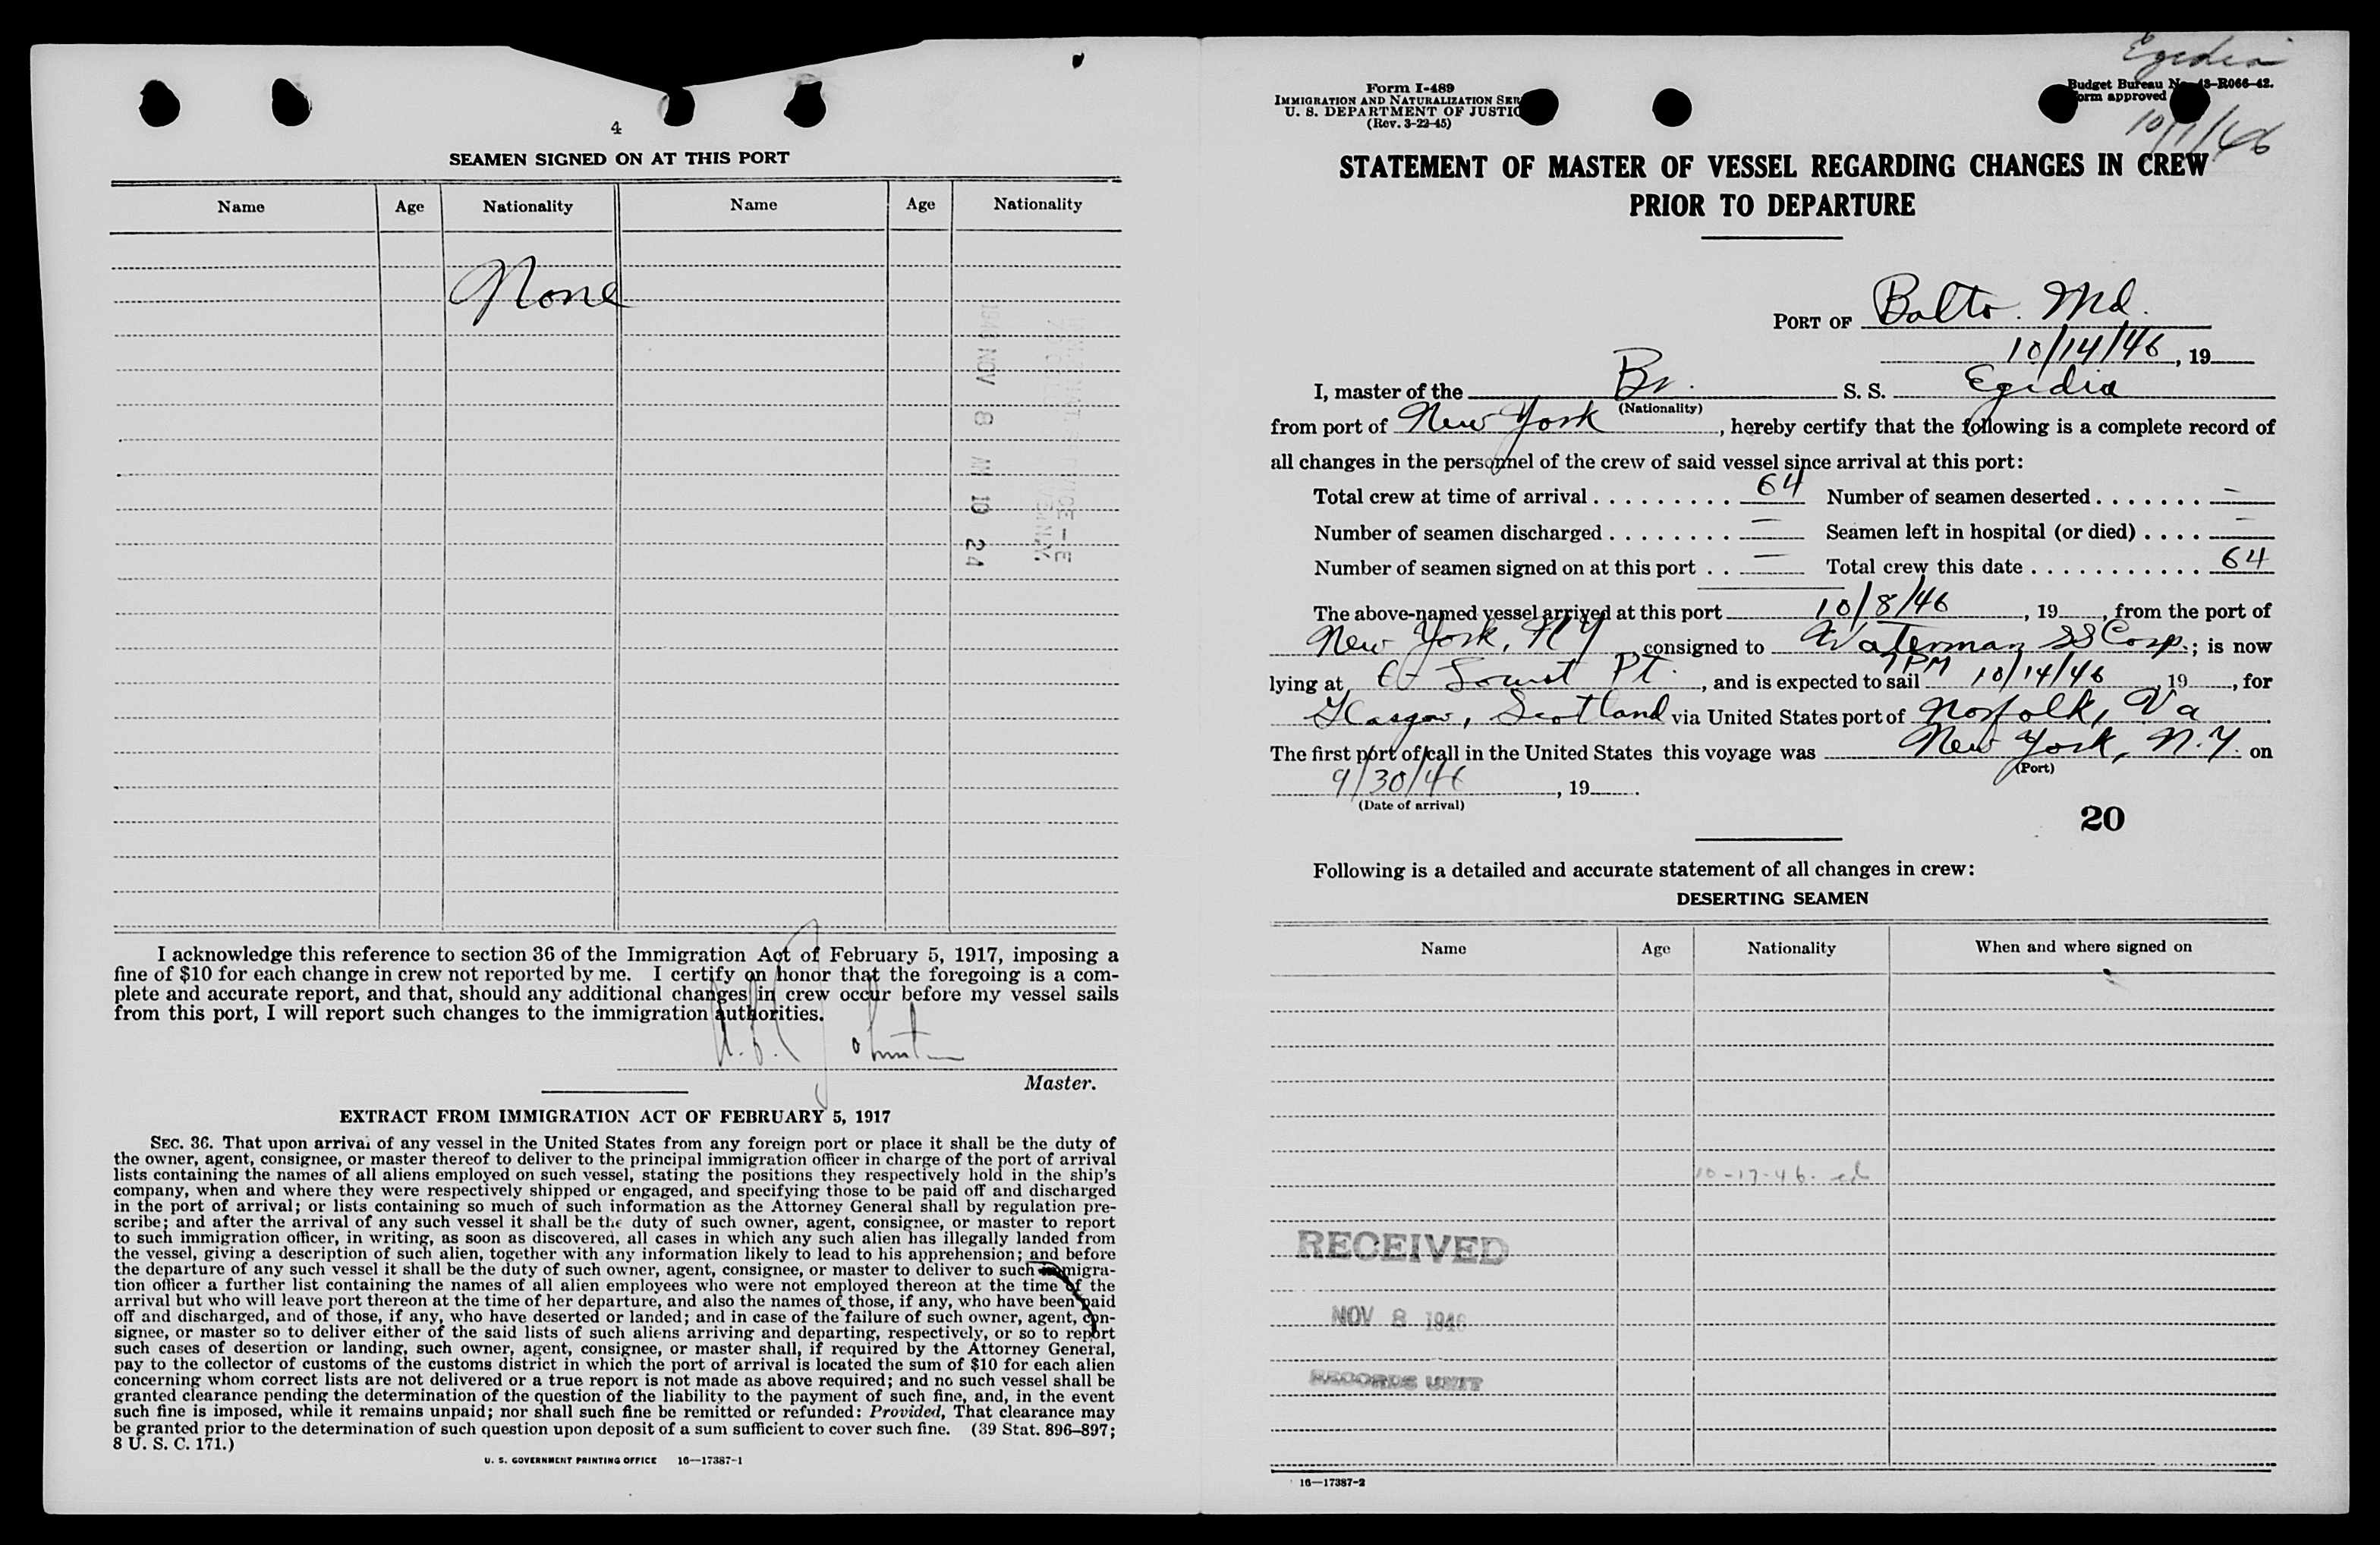 4
SEAMEN SIGNED ON AT THIS PORT
Name Age Nationality Name Age Nationality
None
1946 NOV 8 AM 10 24
I acknowledge this reference to section 36 of the Immigration Act of February 5, 1917, imposing a
fine of $10 for each change in crew not reported by me. I certify on honor that the foregoing is a com-
plete and accurate report, and that, should any additional changes in crew occur before my vessel sails
from this port, I will report such changes to the immigration authorities.
Master.
EXTRACT FROM IMMIGRATION ACT OF FEBRUARY 5, 1917
SEC. 36. That upon arrival of any vessel in the United States from any foreign port or place it shall be the duty of
the owner, agent, consignee, or master thereof to deliver to the principal immigration officer in charge of the port of arrival
lists containing the names of all aliens employed on such vessel, stating the positions they respectively hold in the ship's
company, when and where they were respectively shipped or engaged, and specifying those to be paid off and discharged
in the port of arrival; or lists containing so much of such information as the Attorney General shall by regulation pre-
scribe; and after the arrival of any such vessel it shall be the duty of such owner, agent, consignee, or master to report
to such immigration officer, in writing, as soon as discovered, all cases in which any such alien has illegally landed from
the vessel, giving a description of such alien, together with any information likely to lead to his apprehension; and before
the departure of any such vessel it shall be the duty of such owner, agent, consignee, or master to deliver to such immigra-
tion officer a further list containing the names of all alien employees who were not employed thereon at the time of the
arrival but who will leave port thereon at the time of her departure, and also the names of those, if any, who have been paid
off and discharged, and of those, if any, who have deserted or landed; and in case of the failure of such owner, agent, con-
signee, or master so to deliver either of the said lists of such aliens arriving and departing, respectively, or so to report
such cases of desertion or landing, such owner, agent, consignee, or master shall, if required by the Attorney General,
pay to the collector of customs of the customs district in which the port of arrival is located the sum of $10 for each alien
concerning whom correct lists are not delivered or a true report is not made as above required; and no such vessel shall be
granted clearance pending the determination of the question of the liability to the payment of such fine, and, in the event
such fine is imposed, while it remains unpaid; nor shall such fine be remitted or refunded: Provided, That clearance may
be granted prior to the determination of such question upon deposit of a sum sufficient to cover such fine. (39 Stat. 896–897;
8 U. S. C. 171.)
U. S. GOVERNMENT PRINTING OFFICE 16—17387-1
Egidia
Form I-489
IMMIGRATION AND NATURALIZATION SER
U. S. DEPARTMENT OF JUSTIC
(Rev. 3-22-45)
Budget Bureau No. 43-R066-42.
orm approved
10/1/46
STATEMENT OF MASTER OF VESSEL REGARDING CHANGES IN CREW
PRIOR TO DEPARTURE
PORT OF Balto. Md.
10/14/46, 19
I, master of the Br. S. S. Egidia
(Nationality)
from port of New York, hereby certify that the following is a complete record of
all changes in the personnel of the crew of said vessel since arrival at this port:
Total crew at time of arrival 64 Number of seamen deserted –
Number of seamen discharged – Seamen left in hospital (or died) –
Number of seamen signed on at this port – Total crew this date 64
The above-named vessel arrived at this port 10/8/46, 19, from the port of
New York, NY consigned to Waterman SS Corp.; is now
lying at Pt., and is expected to sail 7 PM 10/14/46, 19, for
Glasgow, Scotland via United States port of Norfolk, Va
The first port of call in the United States this voyage was New York, N.Y. on
(Port)
9/30/46, 19.
(Date of arrival)
20
Following is a detailed and accurate statement of all changes in crew:
DESERTING SEAMEN
Name Age Nationality When and where signed on
10-17-46. ed
RECEIVED
NOV 8 1946
RECORDS UNIT
16—17387-2